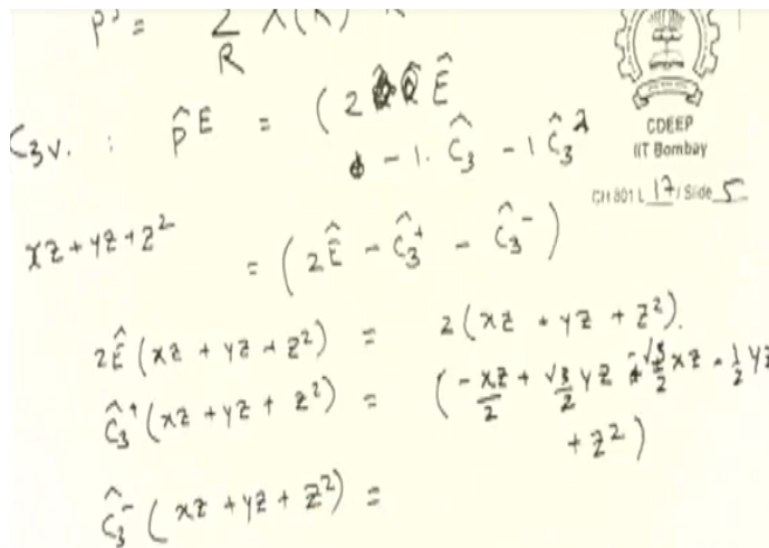 P = 2/R
CDEEP
IIT Bombay
CH 801 L 17 / Slide 5
C₃v. : P̂ᴱ = ( 2 Ê
- 1. Ĉ₃ - 1 Ĉ₃²
xz + yz + z²
= ( 2Ê - Ĉ₃⁺ - Ĉ₃⁻ )
2Ê (xz + yz + z²) = 2 (xz + yz + z²).
Ĉ₃⁺ (xz + yz + z²) = ( -xz/2 + √3/2 yz - √3/2 xz - 1/2 yz
+ z² )
Ĉ₃⁻ ( xz + yz + z²) =